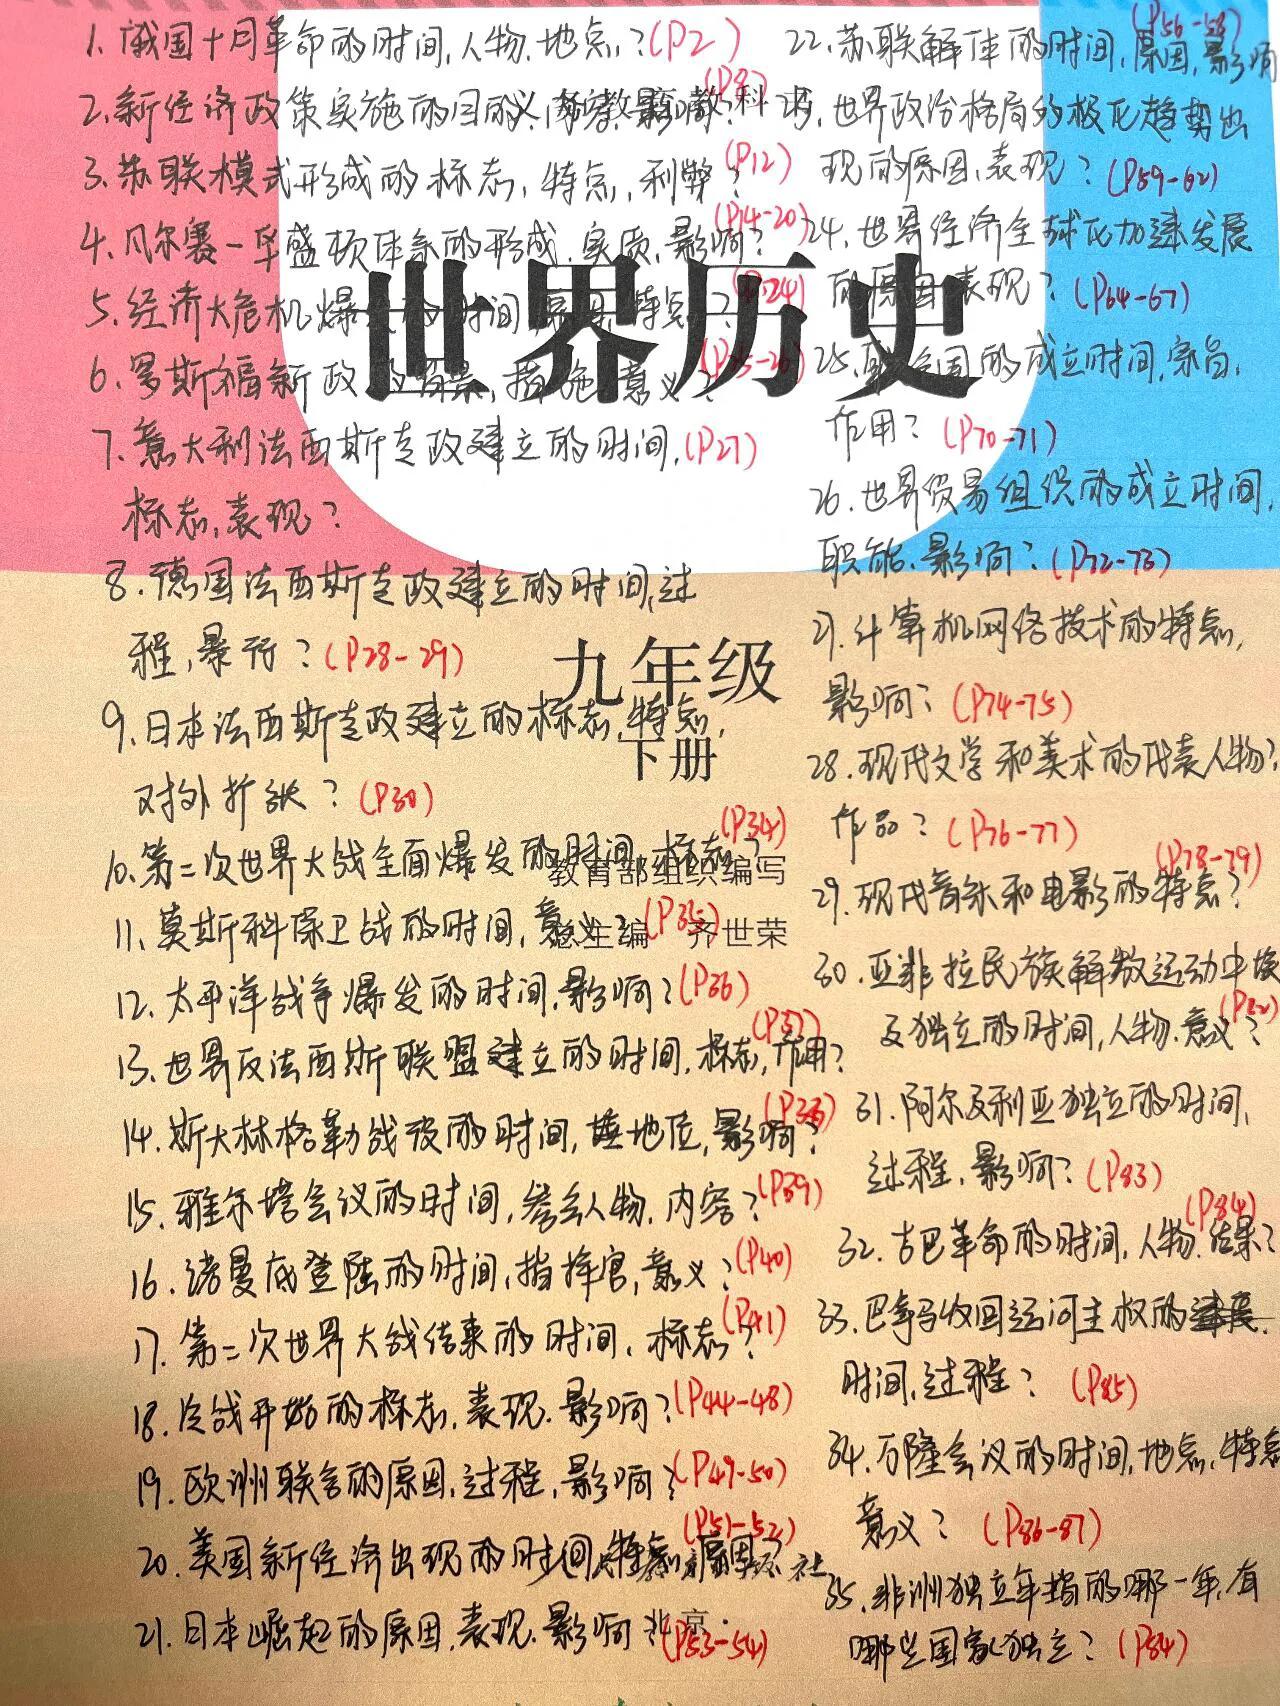 1.俄国十月革命的时间,人物.地点?(P2)
2.新经济政策实施的目的,内容,影响?(P8)
义务教育教科书
3.苏联模式形成的标志,特点,利弊?(P12)
4.凡尔赛一华盛顿体系的形成.实质,影响?(P14-20)
5.经济大危机爆发的时间,原因,特点?(P24)
世界历史
6.罗斯福新政的背景,措施,意义?(P25-26)
7.意大利法西斯专政建立的时间,(P27)
标志,表现?
8.德国法西斯专政建立的时间,过
程,暴行?(P28-29)
九年级
9.日本法西斯专政建立的标志,特点,
下册
对外扩张?(P30)
10.第二次世界大战全面爆发的时间,标志?(P34)
教育部组织编写
11.莫斯科保卫战的时间,意义?(P35)
总主编 齐世荣
12.太平洋战争爆发的时间,影响?(P36)
13.世界反法西斯联盟建立的时间,标志,作用?(P37)
14.斯大林格勒战役的时间,地位,影响?
15.雅尔塔会议的时间,参会人物.内容?(P39)
16.诺曼底登陆的时间,指挥官,意义?(P40)
17.第二次世界大战结束的时间,标志?(P41)
18.冷战开始的标志,表现.影响?(P44-48)
19.欧洲联合的原因,过程,影响?(P49-50)
20.美国新经济出现的时间,特点,原因?(P51-52)
21.日本崛起的原因,表现.影响?(P53-54)
北京·
22.苏联解体的时间,原因,影响(P56-58)
23.世界政治格局多极化趋势出
现的原因,表现?(P59-62)
24.世界经济全球化加速发展
的原因表现?(P64-67)
25.联合国的成立时间,宗旨,
作用?(P70-71)
26.世界贸易组织的成立时间,
职能.影响?(P72-73)
27.计算机网络技术的特点,
影响?(P74-75)
28.现代文学和美术的代表人物?
作品?(P76-77)
29.现代音乐和电影的特点?(P78-79)
30.亚非拉民族解放运动中埃
及独立的时间,人物.意义?(P82)
31.阿尔及利亚独立的时间,
过程,影响?(P83)
32.古巴革命的时间,人物.结果?(P84)
33.巴拿马收回运河主权的
时间,过程?(P85)
34.万隆会议的时间,地点,特点
意义?(P86-87)
35.非洲独立年指的哪一年,有
哪些国家独立?(P84)